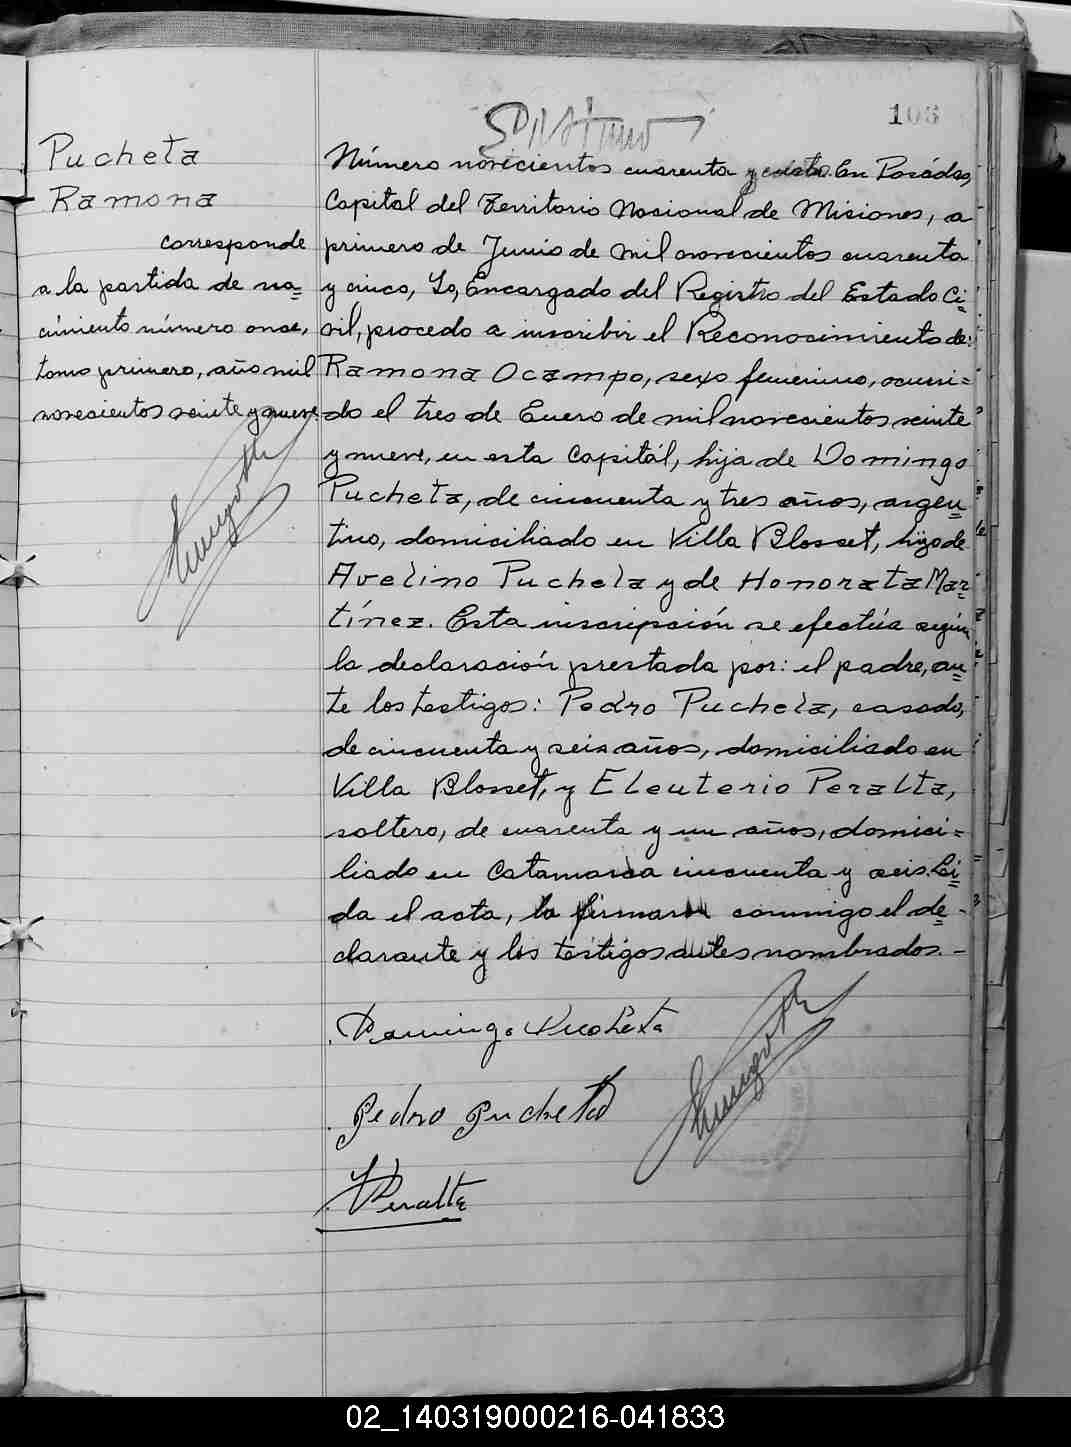 106
Pucheta
Ramona
corresponde
a la partida de na=
cimiento número once,
tomo primero, año mil
novecientos veinte y nueve.
Número novecientos cuarenta y cuatro. En Posadas,
Capital del Territorio Nacional de Misiones, a
primero de Junio de mil novecientos cuarenta
y cinco, Yo, Encargado del Registro del Estado Ci=
vil, procedo a inscribir el Reconocimiento de:
Ramona Ocampo, sexo femenino, ocurri=
do el tres de Enero de mil novecientos veinte
y nueve, en esta Capital, hija de Domingo
Pucheta, de cincuenta y tres años, argen=
tino, domiciliado en Villa Blosset, hijo de
Avelino Pucheta y de Honorata Mar=
tínez. Esta inscripción se efectúa según
la declaración prestada por: el padre, an=
te los testigos: Pedro Pucheta, casado,
de cincuenta y seis años, domiciliado en
Villa Blosset, y Eleuterio Peralta,
soltero, de cuarenta y un años, domici=
liado en Catamarca cincuenta y seis. Leí=
da el acta, la firmaron conmigo el de=
clarante y los testigos antes nombrados.-
Domingo Pucheta
Pedro Pucheta
Peralta
02_140319000216-041833